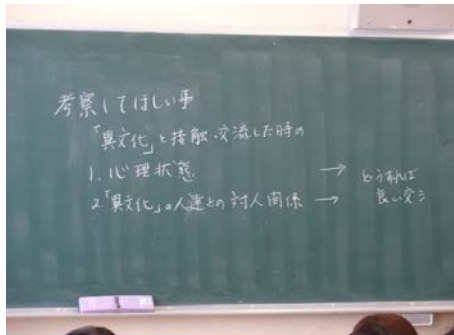 考察してほしい事
「異文化」と接触・交流した時の
1. 心理状態 →
2.「異文化」の人達との対人関係 →
どうすれば
良い交